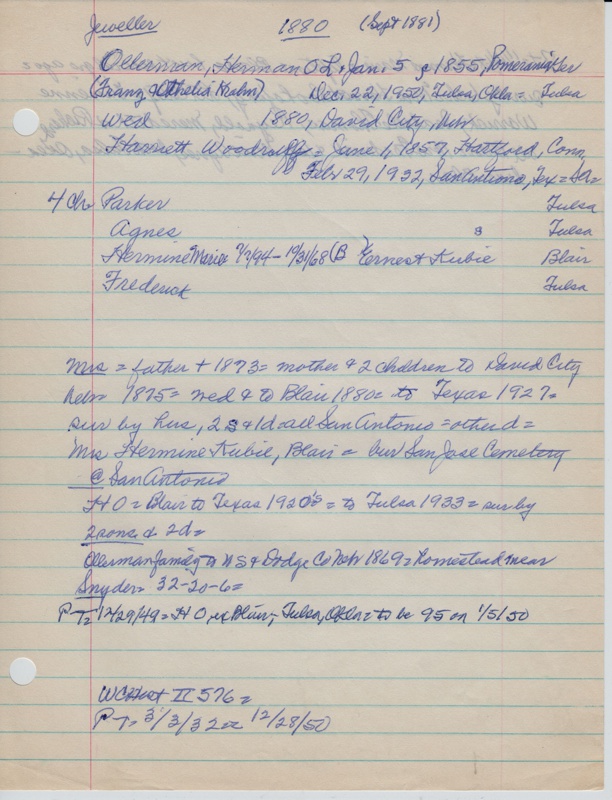 Jeweller 1880 (Sept 1881)
Ollerman, Herman O L * Jan. 5, 1855, Pomerania, Ger
(Franz & Othelia Krahn) Dec. 22, 1950, Tulsa, Okla = Tulsa
wed 1880, David City, Neb
Harriett Woodruff = June 1, 1857, Hartford, Conn,
Feb 29, 1932, San Antonio, Tex = SA=
4 Ch Parker Tulsa
Agnes s Tulsa
Hermine Marie 7/7/94 - 10/31/68 (B) Ernest Kubie Blair
Frederick Tulsa
Mrs = father + 1873 = mother & 2 children to David City
Neb = 1875 = wed & to Blair 1880 = to Texas 1927 =
sur by hus, 2s & 1d all San Antonio = other d =
Mrs Hermine Kubie, Blair = bur San Jose Cemetery
@ San Antonio
H O = Blair to Texas 1920's = to Tulsa 1933 = sur by
2 sons & 2d =
Ollerman family to US & Dodge Co Neb 1869 = Homestead near
Snyder = 32-20-6 =
P T = 12/29/49 = H O, ex Blair, Tulsa, Okla = to be 95 on 1/5/50
WCHist II 576 =
P T = 3/3/32 = 12/28/50